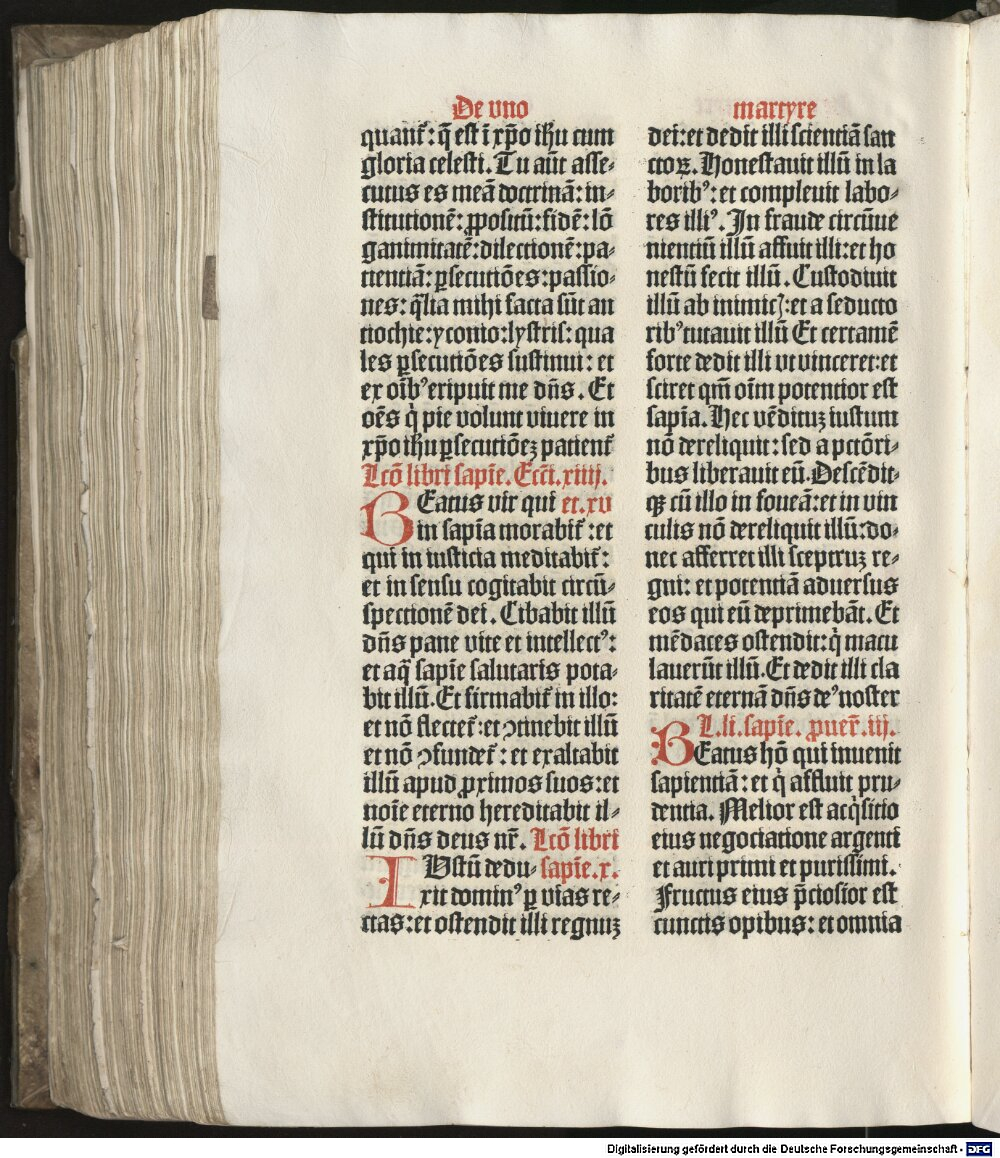 De vno
quant᷑: q̄ est ī xp̄o ih̄u cum
gloria celesti. Tu aūt asse⸗
cutus es meā doctrinā: in⸗
stitutionē: ꝓpositū: fidē: lō
ganimitatē: dilectionē: pa⸗
tientiā: ꝑsecutiōes: passio⸗
nes: q̄lia mihi facta sūt an
tiochie: yconio: lystris: qua
les ꝑsecutiōes sustinui: et
ex oīb⁹ eripuit me dn̄s. Et
oēs q̇ pie volunt viuere in
xp̄o ih̄u ꝑsecutiōeꝫ patient᷑
Lcō libri sapīe. Ecci. xiiij.
BEatus vir qui et. xv
in sapīa morabit᷑: et
qui in iusticia meditabit᷑:
et in sensu cogitabit circū⸗
spectionē dei. Cibabit illū
dn̄s pane vite et intellect⁹:
et aq̄ sapīe salutaris pota⸗
bit illū. Et firmabit᷑ in illo:
et nō flectet᷑: et ꝯtinebit illū
et nō ꝯfundet᷑: et exaltabit
illū apud ꝓximos suos: et
noīe eterno hereditabit il⸗
lū dn̄s deus nr̄. Lcō libri
IVstū dedu⸗ sapīe. x.
xit domin⁹ ꝑ vias re⸗
ctas: et ostendit illi regnuꝫ
martyre
dei: et dedit illi scientiā san
ctoꝝ. Honestauit illū in la
borib⁹: et compleuit labo⸗
res illi⁹. In fraude circūue
nientiū illū affuit illi: et ho
nestū fecit illū. Custodiuit
illū ab inimicꝭ: et a seducto
rib⁹ tutauit illū Et certamē
forte dedit illi vt vinceret: et
sciret qm̄ oīm potentior est
sapīa. Hec vēdituꝫ iustum
nō dereliquit: sed a pctōri⸗
bus liberauit eū. Descēdit⸗
qꝫ cū illo in foueā: et in vin
culis nō dereliquit illū: do⸗
nec afferret illi sceptruꝫ re⸗
gni: et potentiā aduersus
eos qui eū deprimebāt. Et
mēdaces ostendit: q̇ macu
lauerūt illū. Et dedit illi cla
ritatē eternā dn̄s de⁹ noster
L. li. sapīe. ꝓuer̄. iij.
BEatus hō qui inuenit
sapientiā: et q̇ affluit pru⸗
dentia. Melior est acq̇sitio
eius negociatione argenti
et auri primi et purissimi.
Fructus eius p̄ciosior est
cunctis opibus: et omnia
Digitalisierung gefördert durch die Deutsche Forschungsgemeinschaft - DFG